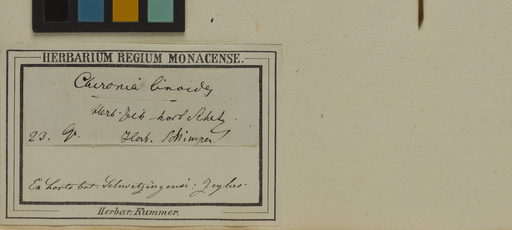 HERBARIUM REGIUM MONACENSE.
Chironia linoides
Herb.
23. Gr. Herb. Schimper
Ex horto bot. Schwetzingensi: Zeyher.
Herbar: Kummer.